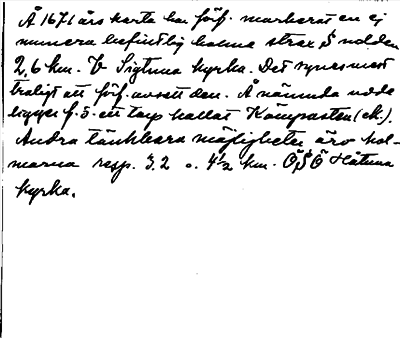 Å 1671 års karta har förf. markerat en ej
numera befintlig holme strax S udden
2,6 km. V Sigtuna kyrka. Det synes mest
troligt att förf. avsett den. Å nämnda udde
ligger f.ö. ett torp kallat Kämpasten (ek.).
Andra tänkbara möjligheter äro hol-
marna resp. 3.2 o. 4½ km. ÖSÖ Håtuna
kyrka.